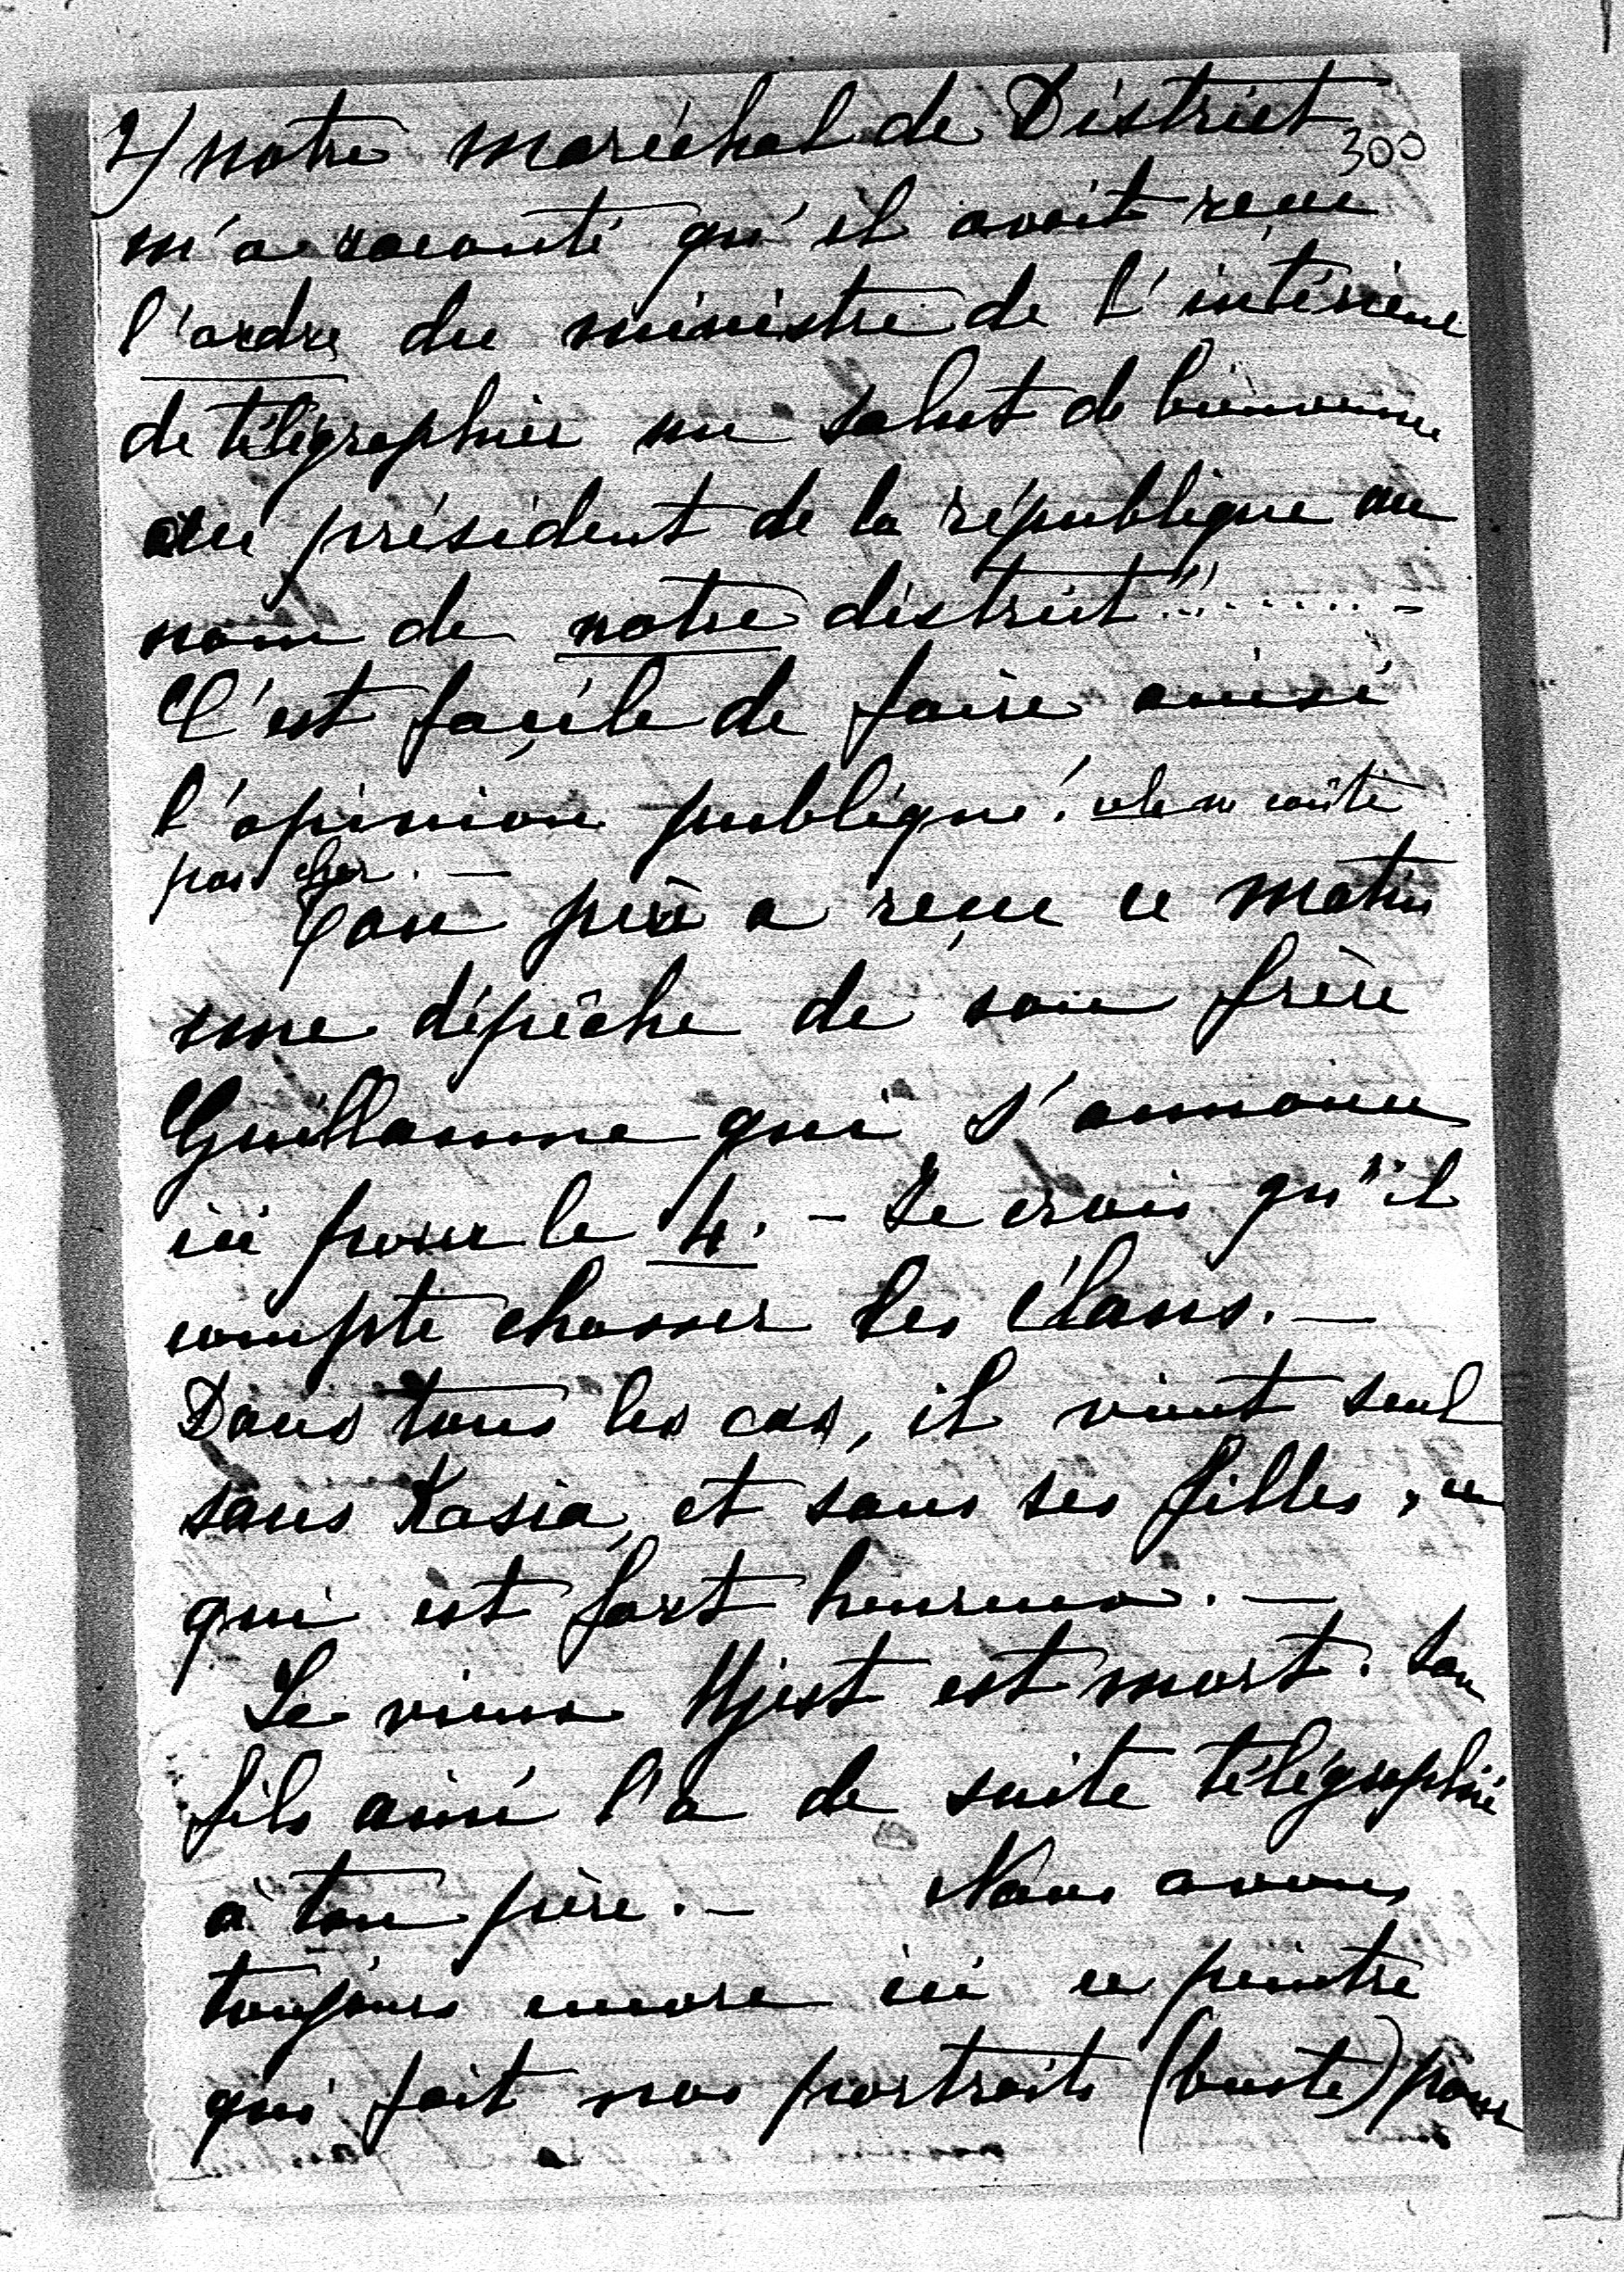 2/ notre maréchal de District
300
m'a raconté qu'il avait reçu
l'ordre du ministre de l'intérieur
de télégraphier un salut de bienvenue
au président de la république au
nom de notre district!!! ....... -
C'est façile de faire ainsi
l'opinion publique! cela ne coûte
pas cher. —
Ton père a reçu ce matin
une dépêche de son frère
Guillaume qui s'annonce
ici pour le 4. - Je crois qu'il
compte chasser les élans. —
Dans tous les cas, il vient seul
sans Kasia, et sans ses filles, ce
qui est fort heureux. —
Le vieux Ujest est mort. Son
fils ainé l'a de suite télégraphié
à ton père. — Nous avons
toujours encore ici ce peintre
qui fait nos portraits (buste) pour